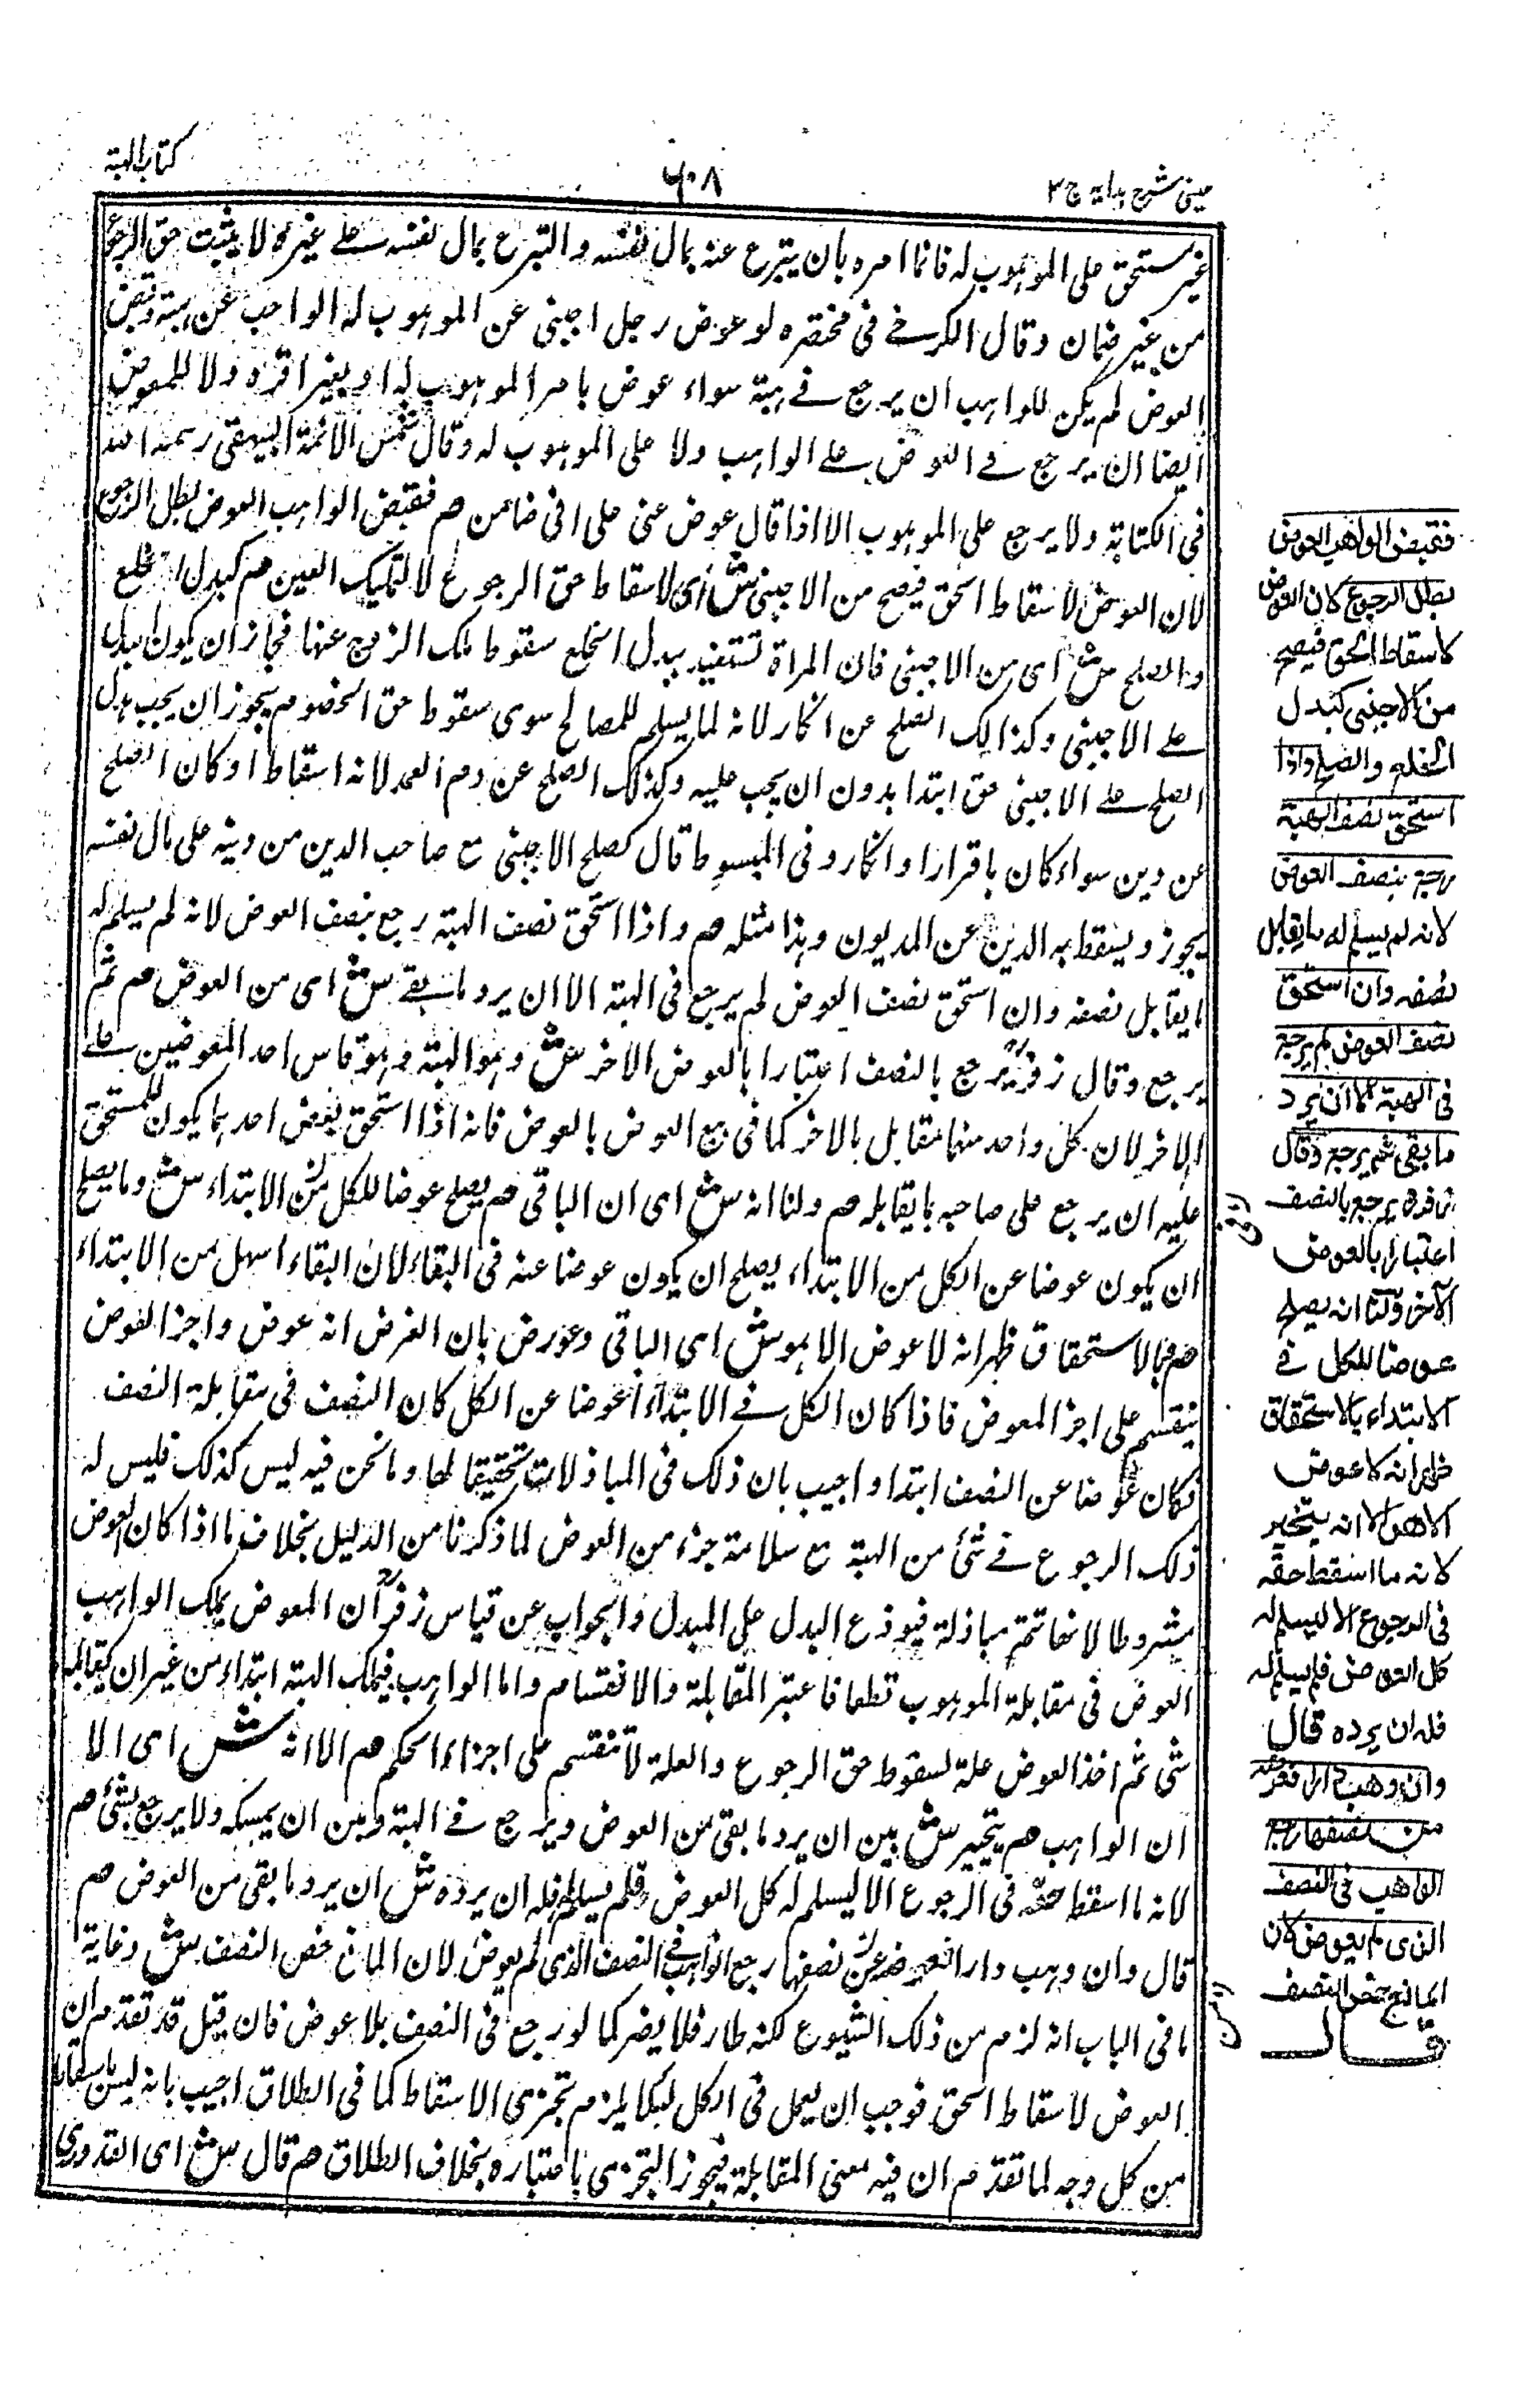 عینی شرح ہدایہ ج ٣
٦٠٨
كتاب الهبة
غير مستحق على الموهوب له فانما امره بان يتبرع عنه بمال نفسه والتبرع بمال نفسه على غيره لا يثبت حق الرجوع
من غير ضمان وقال الكرخي في مختصره لو عوض رجل اجنبي عن الموهوب له الواهب عن هبته وقبض
العوض لم يكن للواهب ان يرجع في هبته سواء عوض بامر الموهوب له او بغير امره ولا للمعوض
ايضا ان يرجع في العوض على الواهب ولا على الموهوب له وقال شمس الائمة البيهقي رحمه الله
في الكتابة ولا يرجع على الموهوب الا اذا قال عوض عني على اني ضامن م فقبض الواهب العوض بطل الرجوع
لان العوض لاسقاط الحق فيصح من الاجنبي ش اى لاسقاط حق الرجوع لا لتمليك العين م كبدل الخلع
والصلح ش اى من الاجنبي فان المراة تستفيد ببدل الخلع سقوط ملك الزوج عنها فجاز ان يكون البدل
على الاجنبي وكذالك الصلح عن انكار لانه لما يسلم للمصالح سوى سقوط حق الخصوم يجوز ان يجب بدل
الصلح على الاجنبي حق ابتدا بدون ان يجب عليه وكذلك الصلح عن دم العمد لانه اسقاط او كان الصلح
عن دين سواء كان باقرار او انكار وفي المبسوط قال كصلح الاجنبي مع صاحب الدين من دينه على مال نفسه
يجوز ويسقط به الدين عن المديون وهذا مثله م واذا استحق نصف الهبة رجع بنصف العوض لانه لم يسلم له
ما يقابل نصفه وان استحق نصف العوض لم يرجع في الهبة الا ان يرد ما بقي ش اى من العوض م ثم
يرجع وقال زفر يرجع بالنصف اعتبارا بالعوض الاخر ش وهو الهبة وهو قاس احد المعوضين على
الاخر لان كل واحد منهما مقابل بالاخر كما في بيع العوض بالعوض فانه اذا استحق بعض احدهما يكون للمستحق
عليه ان يرجع على صاحبه بما يقابله م ولنا انه ش اى ان الباقي م يصلح عوضا للكل من الابتداء ش وما يصلح
ان يكون عوضا عن الكل من الابتداء يصلح ان يكون عوضا عنه في البقاء لان البقاء اسهل من الابتداء
م فبالاستحقاق ظهر انه لا عوض الا هو ش اى الباقي وعورض بان الغرض انه عوض واجز العوض
ينقسم على اجزا المعوض فاذا كان الكل في الابتداء عوضا عن الكل كان النصف في مقابلة النصف
فكان عوضا عن النصف ابتدا واجيب بان ذلك في المبادلات تحقيقا لها وما نحن فيه ليس كذلك فليس له
ذلك الرجوع في شئ من الهبة مع سلامة جزء من العوض لما ذكرنا من الدليل بخلاف ما اذا كان العوض
مشروطا لانها تتم مبادلة فيوزع البدل على المبدل والجواب عن قياس زفر ان المعوض يملك الواهب
العوض في مقابلة الموهوب قطعا فاعتبر المقابلة والانقسام واما الواهب فيملك الهبة ابتداء من غير ان يقابله
شئ ثم اخذ العوض علة لسقوط حق الرجوع والعلة لا تنقسم على اجزاء الحكم م الا انه ش اى الا
ان الواهب م يتخير ش بين ان يرد ما بقي من العوض ويرجع في الهبة وبين ان يمسكه ولا يرجع بشئ م
لانه ما اسقط حقه في الرجوع الا ليسلم له كل العوض فلم يسلم فله ان يرده ش ان يرد ما بقي من العوض م
قال وان وهب دارا فعوضه عن نصفها رجع الواهب في النصف الذى لم يعوض لان المانع خص النصف ش وغاية
ما في الباب انه لزم من ذلك الشيوع لكنه طار فلا يضر كما لو رجع في النصف بلا عوض فان قيل قد تقدم ان
العوض لاسقاط الحق فوجب ان يعمل في الكل لئلا يلزم تجزى الاسقاط كما في الطلاق اجيب بانه ليس باسقاط
من كل وجه لما تقدم ان فيه معنى المقابلة فيجوز التجزى باعتباره بخلاف الطلاق م قال ش اى القدورى
فقبض الواهب العوض
بطل الرجوع لان العوض
لاسقاط الحق فيصح
من الاجنبي كبدل
الخلع والصلح واذا
استحق نصف الهبة
رجع بنصف العوض
لانه لم يسلم له ما يقابل
نصفه وان استحق
نصف العوض لم يرجع
في الهبة الا ان يرد
ما بقي ثم يرجع وقال
زفر يرجع بالنصف
اعتبارا بالعوض
الآخر ولنا انه يصلح
عوضا للكل في
الابتداء بالاستحقاق
ظهر انه لا عوض
الا هو الا انه يتخير
لانه ما اسقط حقه
في الرجوع الا ليسلم له
كل العوض فلم يسلم له
فله ان يرده قال
وان وهب دارا فعوضه
من نصفها رجع
الواهب في النصف
الذى لم يعوض لان
المانع خص النصف
قال